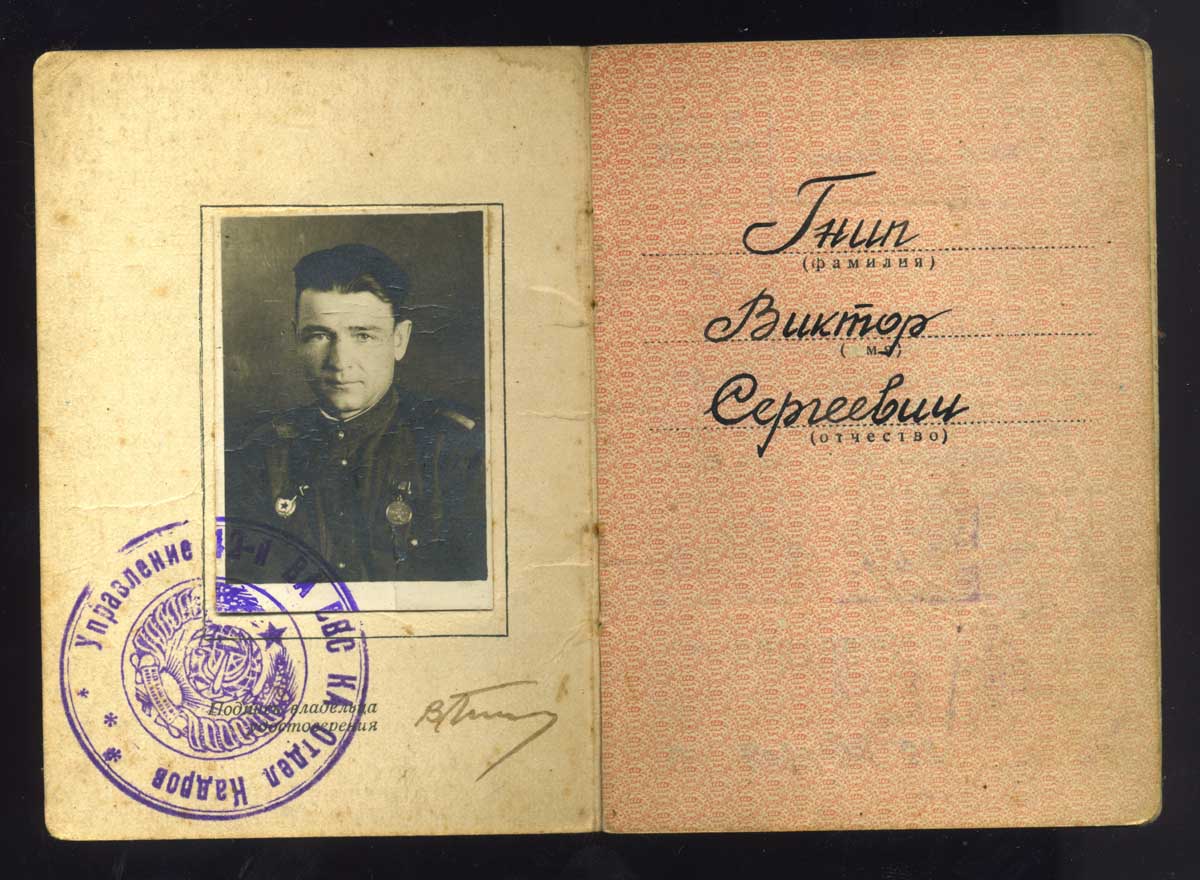 Управление 40-й ВА ЕВС КА
Отдел Кадров
Подпись владельца
удостоверения
Гнип
(фамилия)
Виктор
Сергеевич
(отчество)